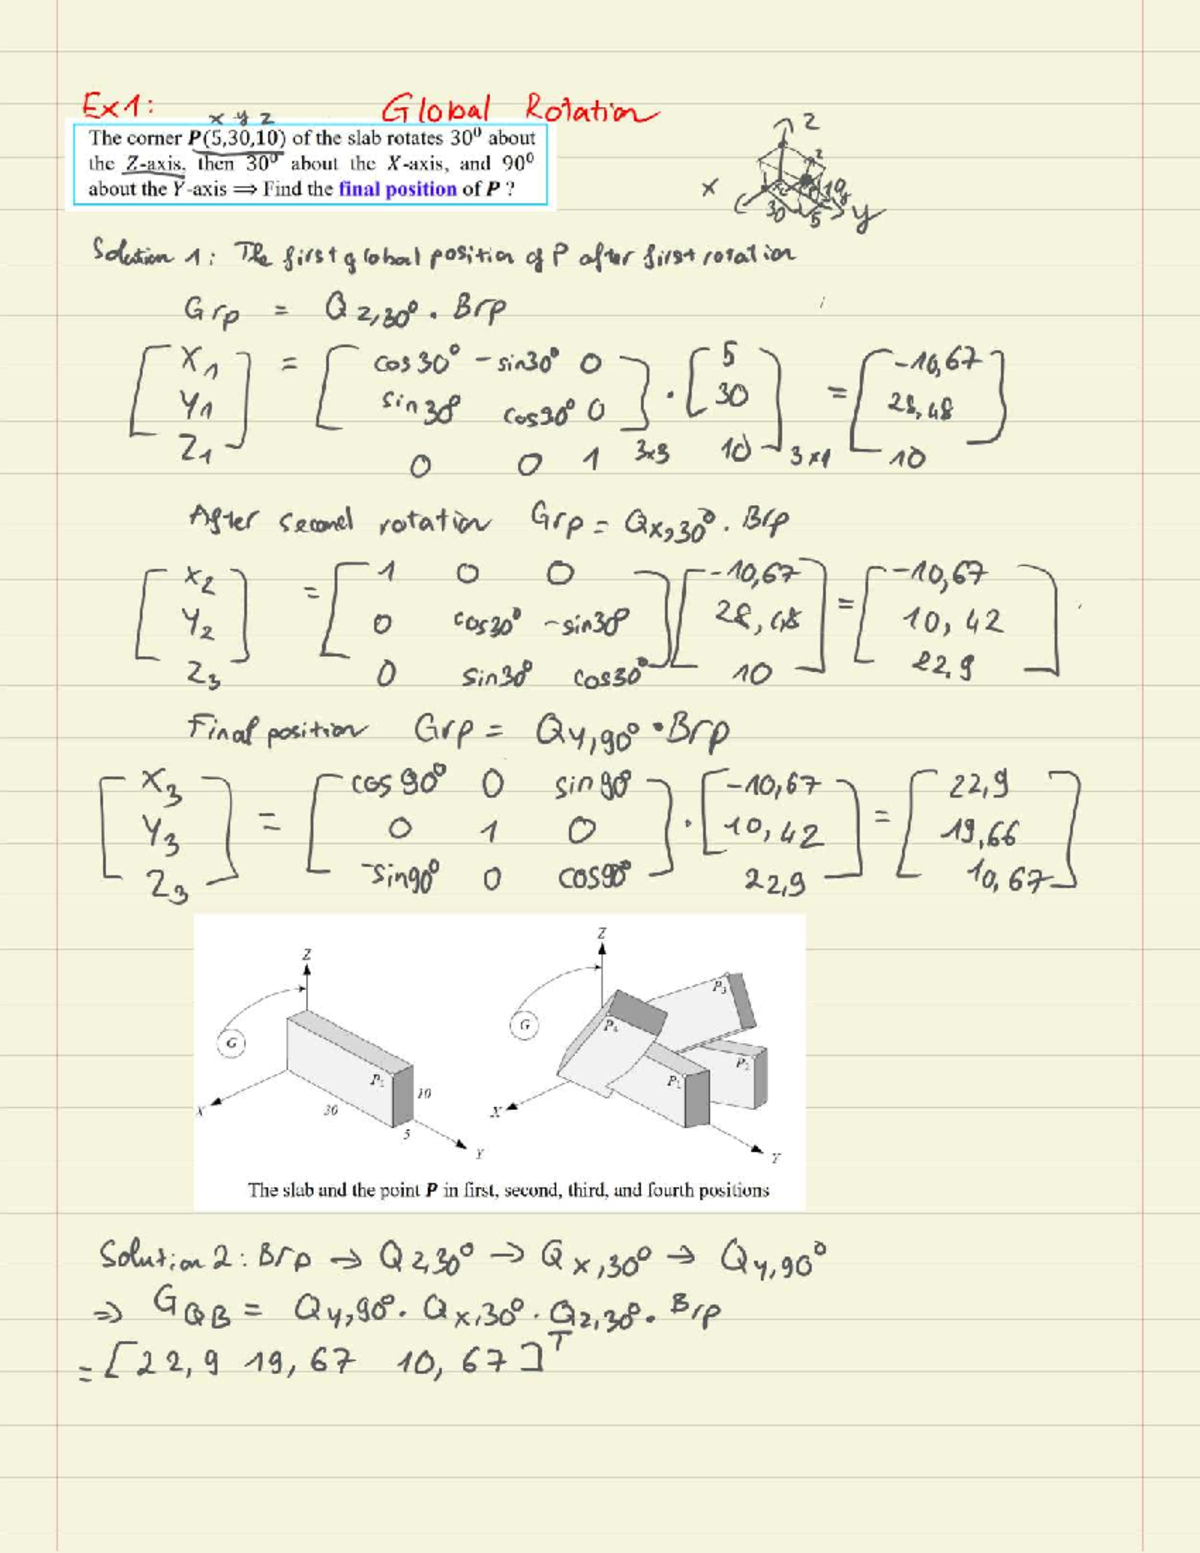 Ex1: Global Rotation
x y z
The corner P(5,30,10) of the slab rotates 30⁰ about
the Z-axis, then 30⁰ about the X-axis, and 90⁰
about the Y-axis ⟹ Find the final position of P ?
Z
X
30 5 y
Solution 1: The first global position of P after first rotation
Grp = Qz,30° . Brp
[X1 Y1 Z1] = [cos30° -sin30° 0
sin30° cos30° 0
0 0 1] 3x3 . [5 30 10] 3x1 = [-10,67 28,48 10]
After second rotation Grp = Qx,30° . Brp
[X2 Y2 Z3] = [1 0 0
0 cos30° -sin30°
0 sin30° cos30°] [-10,67 28,48 10] = [-10,67 10,42 22,9]
Final position Grp = Qy,90° • Brp
[X3 Y3 Z3] = [cos90° 0 sin90°
0 1 0
-sin90° 0 cos90°] . [-10,67 10,42 22,9] = [22,9 19,66 10,67]
Z Z
G P1 10 30 5 X Y
G P4 P3 P2 P1 X Y
The slab and the point P in first, second, third, and fourth positions
Solution 2: Brp → Qz,30° → Qx,30° → Qy,90°
⇒ GQB = Qy,90° . Qx,30° . Qz,30° . Brp
= [22,9 19,67 10,67]ᵀ